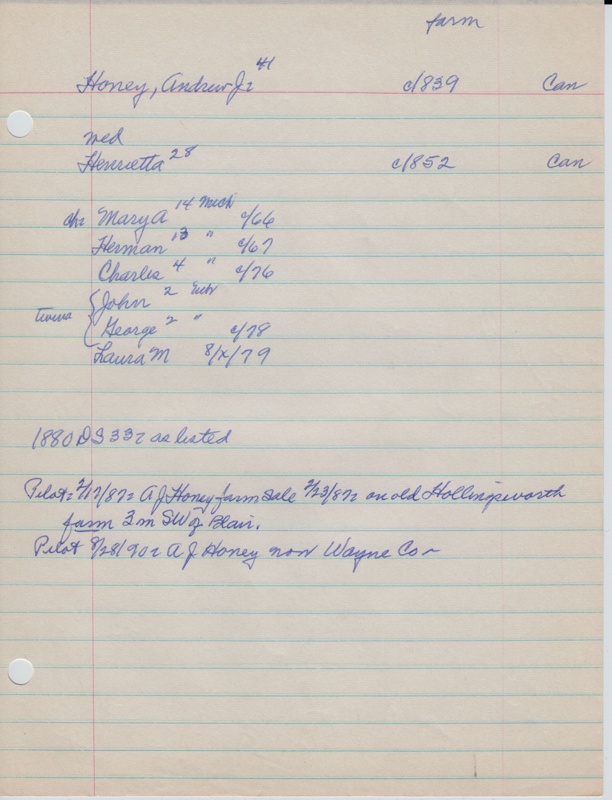 farm
Honey, Andrew J= 41 c/839 Can
wed
Henrietta 28 c/852 Can
ch= Mary A 14 Mich c/66
Herman 13 " c/67
Charles 4 " c/76
twins John 2 Nebr
George 2 " c/78
Laura M 8/x/79
1880 DS 33= as listed
Pilot= 2/17/87= A J Honey farm sale 2/23/87= on old Hollingsworth
farm 3 m SW of Blair.
Pilot 8/28/90= A J Honey now Wayne Co~